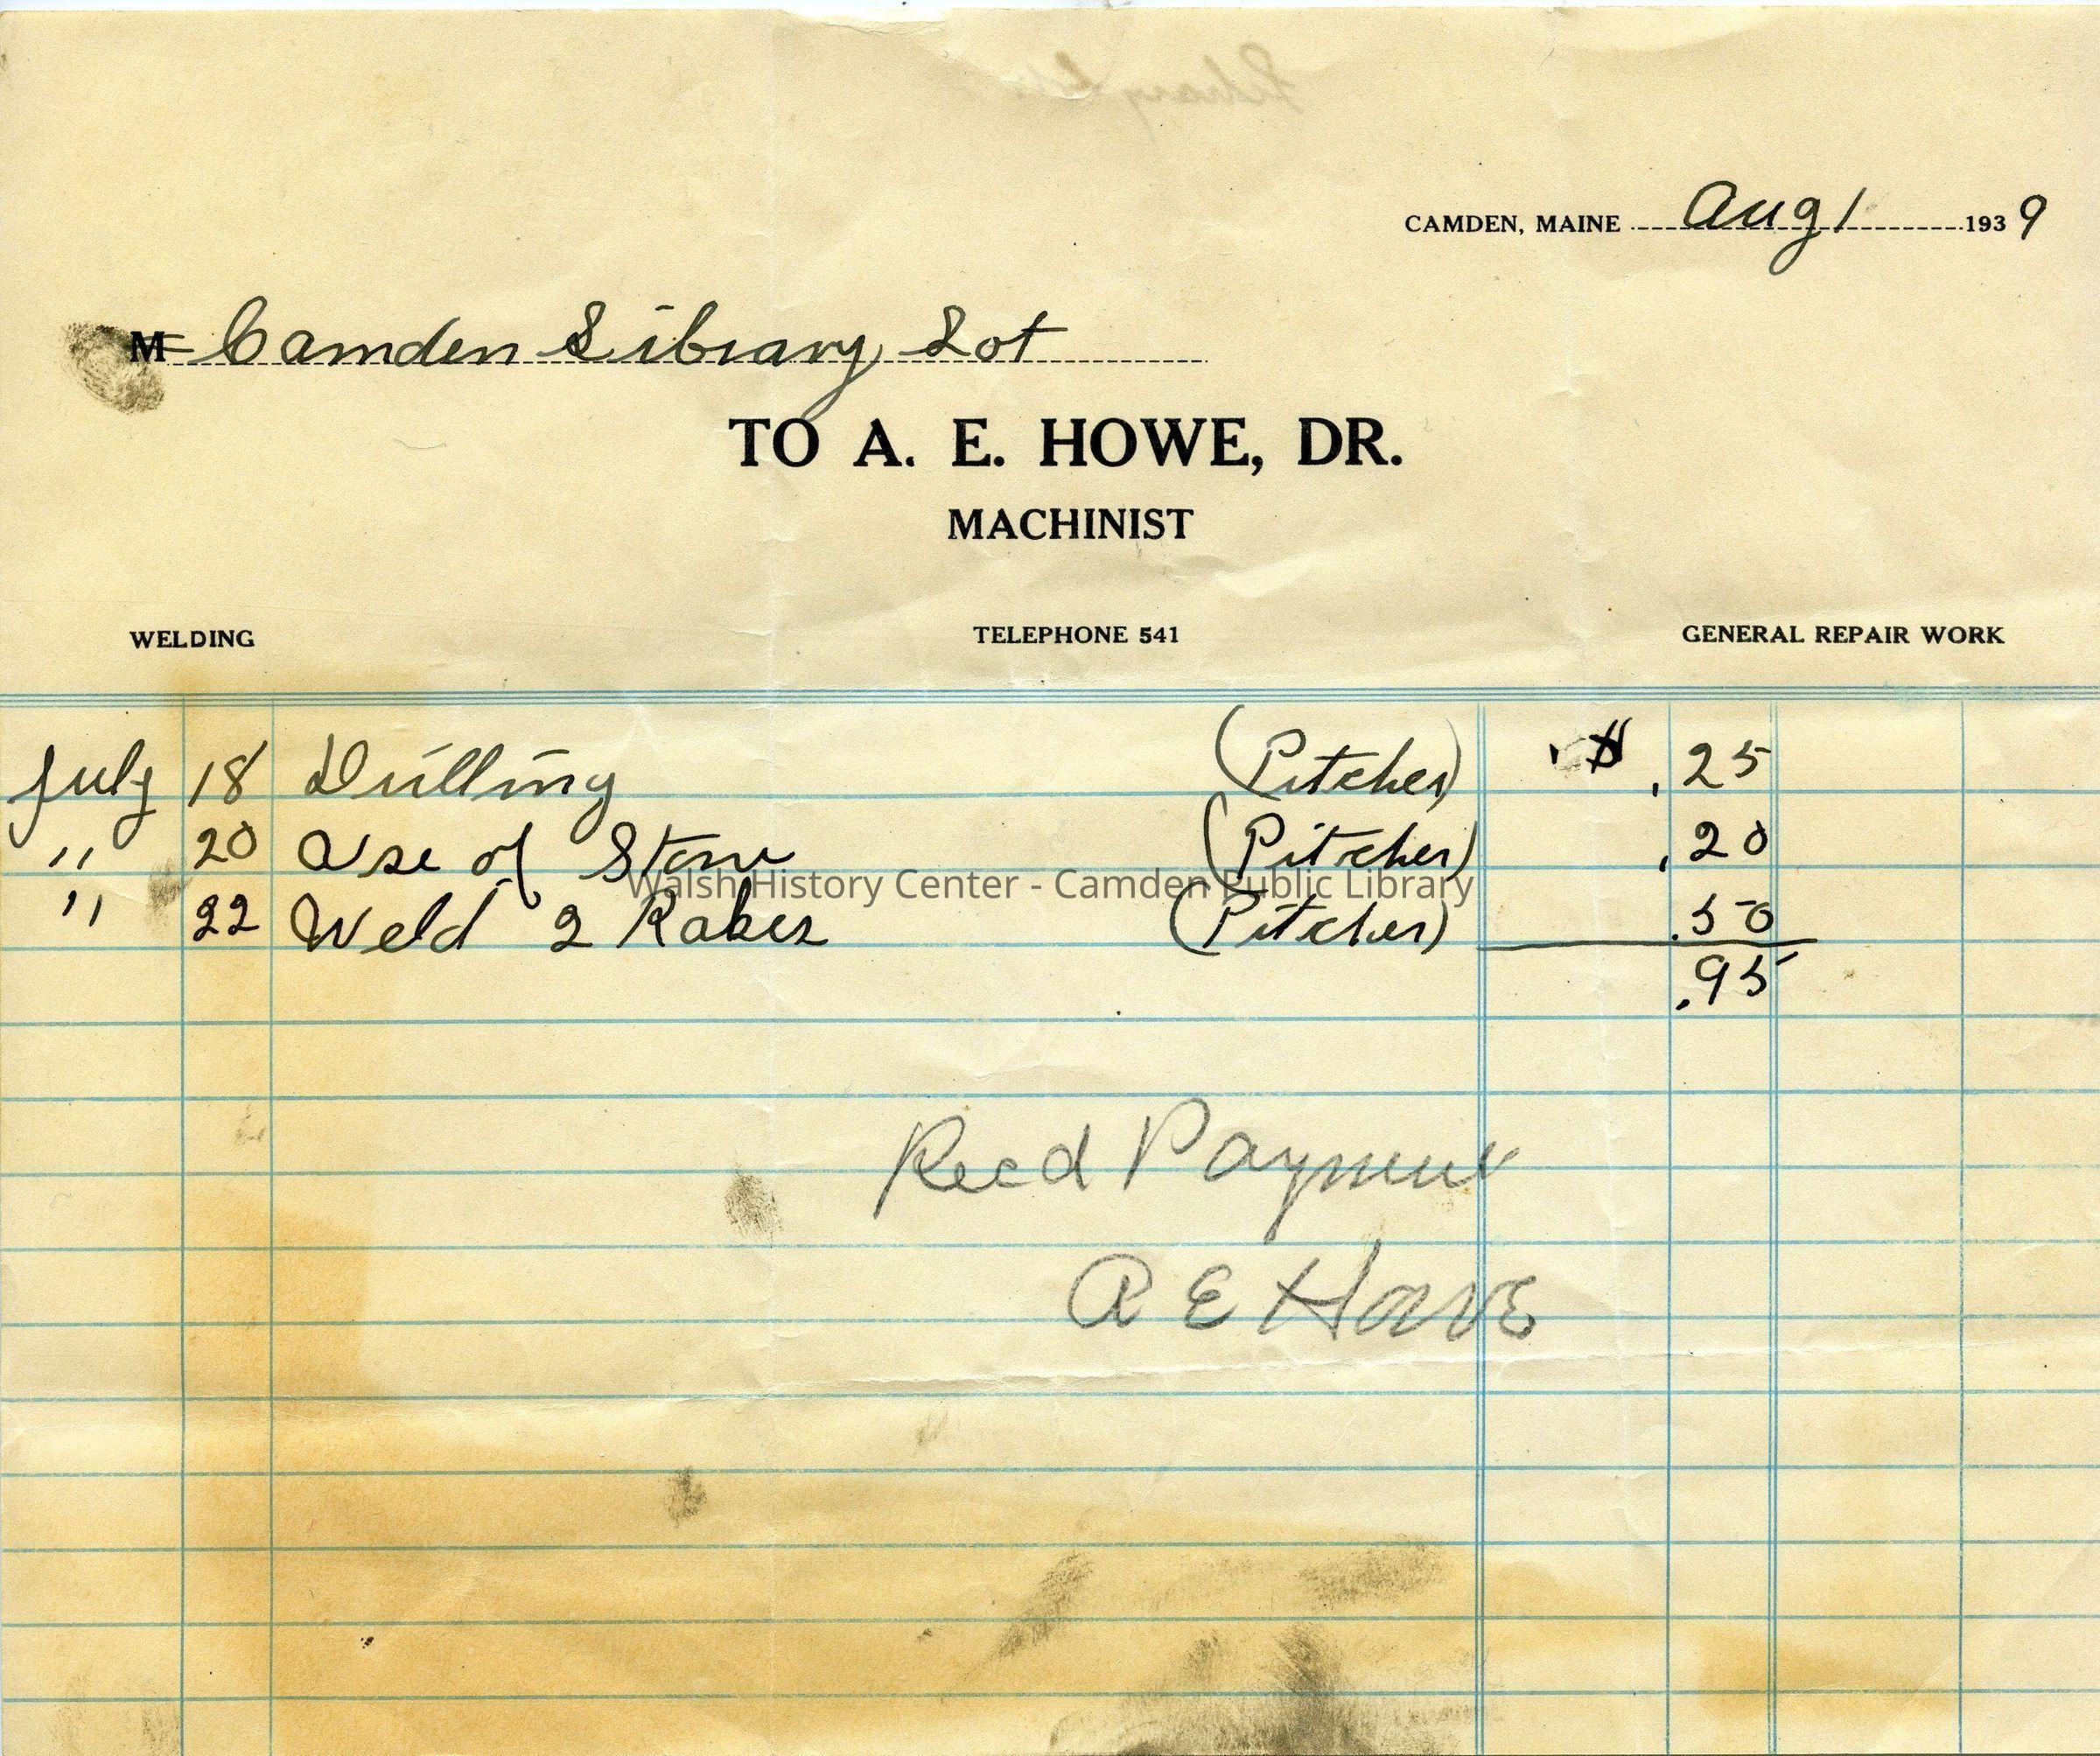 CAMDEN, MAINE Aug 1 1939
M Camden Library Lot
TO A. E. HOWE, DR.
MACHINIST
WELDING TELEPHONE 541 GENERAL REPAIR WORK
July 18 Drilling (Pitcher) $ .25
" 20 Use of (Pitcher) .20
Walsh History Center - Camden Public Library
" 22 Weld 2 Rakes (Pitcher) .50
.95
Recd Payment
A E Howe